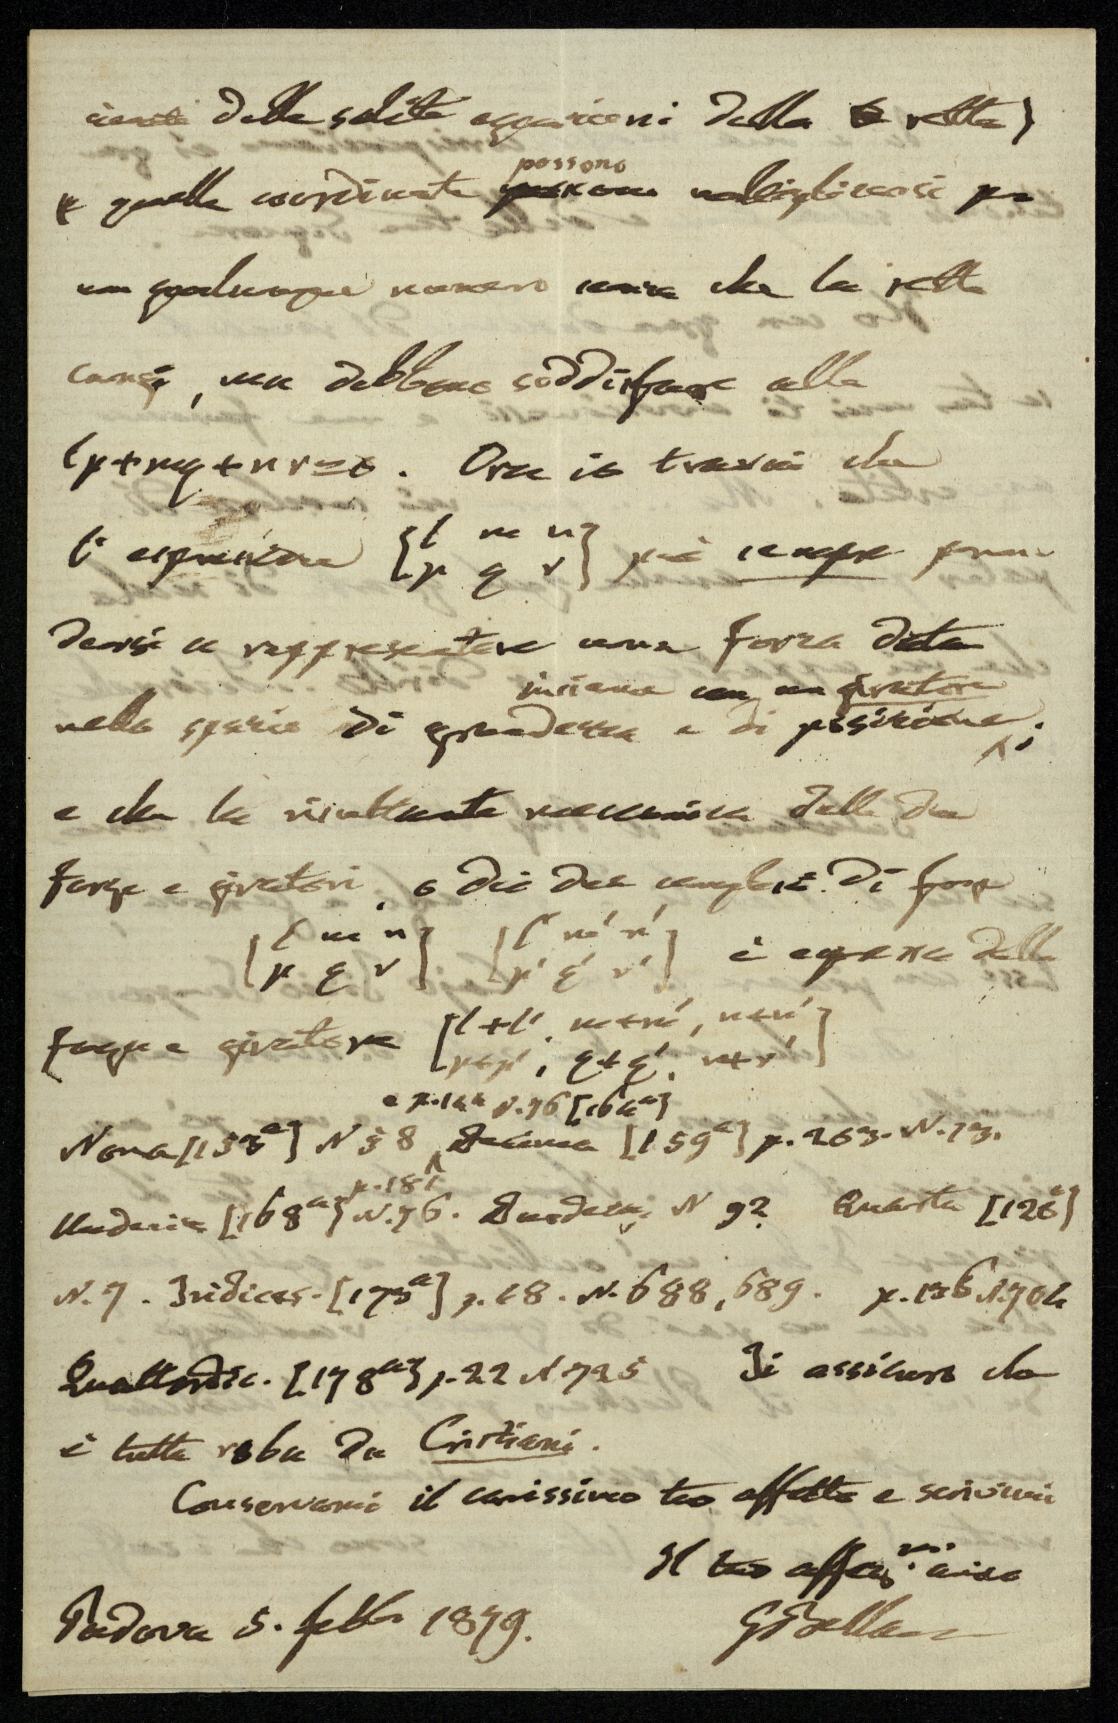 cienti delle solite equazioni della retta)
quelle coordinate possono moltiplicarsi per
un qualunque numero senza che la retta
cangi, ma debbono soddisfare alla
lp+mq+nr=0. Ora io trovai che
l'espressione [l m n
p q r] può sempre pren-
dersi a rappresentare una forza data
insieme con un giratore
nello spazio di grandezza e di posizione;
e che la risultante meccanica delle due
forze e giratori, o di due coppie di forze
[l m n
p q r] [l' m' n'
p' q' r'] è espressa dalla
forza e giratore [l+l', m+m', n+n'
p+p', q+q', r+r']
e p.144 N.76 [164a]
Nona [153a] N 58 Decima [159a] p.263. N.73.
p.181
Undecim [168a] N.76. Duodecim N 92 Quarta [126a]
N.7. Tridices. [173a] p.68. N.688,689. p.136 N.704
Quattordic. [178a] p.22 N 725 Ti assicuro che
è tutta roba da Cristiani.
Conservami il carissimo tuo affetto e scrivimi
Il tuo affez.mo amico
Padova 5. febb. 1879. GBella